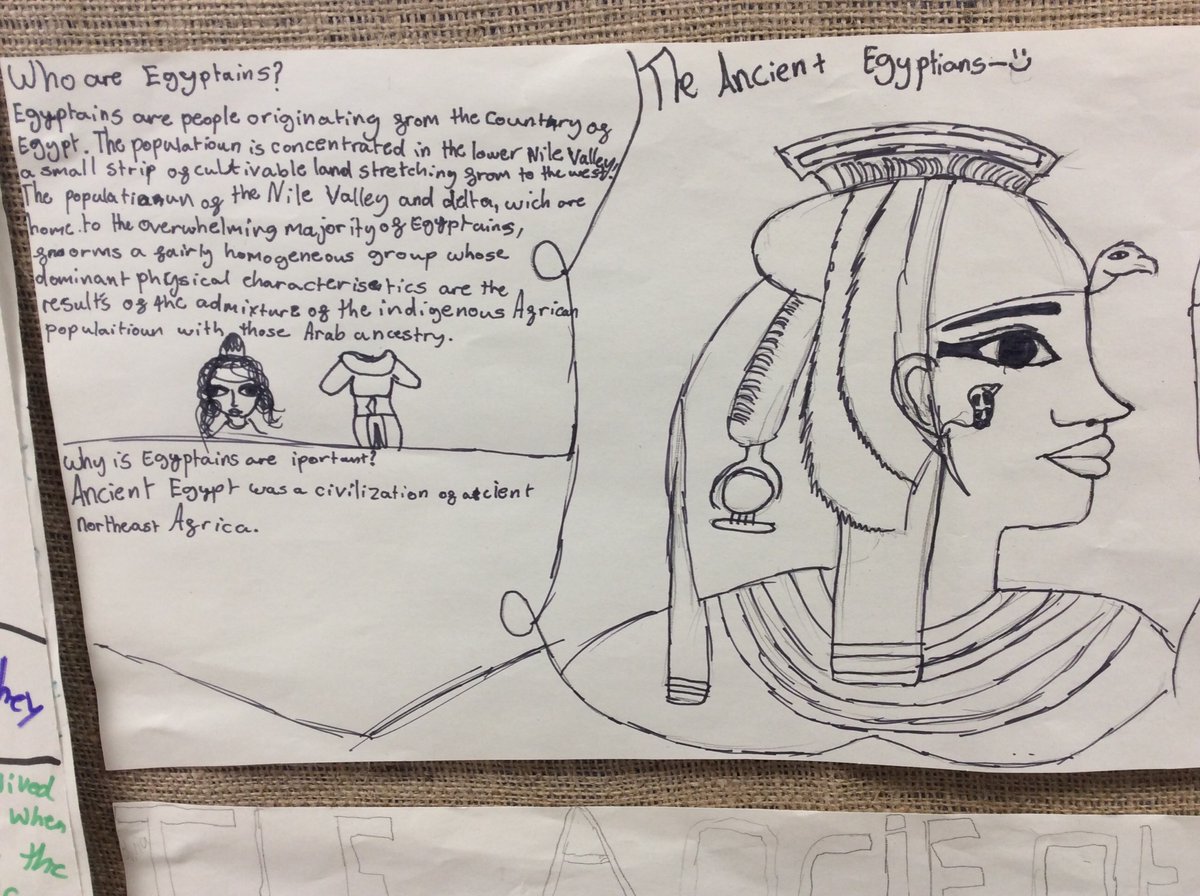 Who are Egyptains?
Egyptains are people originating from the Country of
Egypt. The populatioun is concentrated in the lower Nile Valley,
a small strip of cultivable land stretching from to the west.
The populatianun of the Nile Valley and delta, wich are
home to the overwhelming majority of Egyptains,
forms a fairly homogeneous group whose
dominant physical characterisetics are the
results of the admixture of the indigenous African
populaitioun with those Arab ancestry.
Why is Egyptains are iportant?
Ancient Egypt was a civilization of ancient
northeast Africa.
The Ancient Egyptians
hey
lived
when
the
Ancient